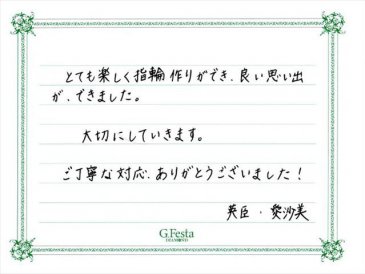 とても楽しく指輪作りができ、良い思い出
が、できました。
大切にしていきます。
ご丁寧な対応、ありがとうございました！
英臣・愛沙美
G.Festa
DIAMOND